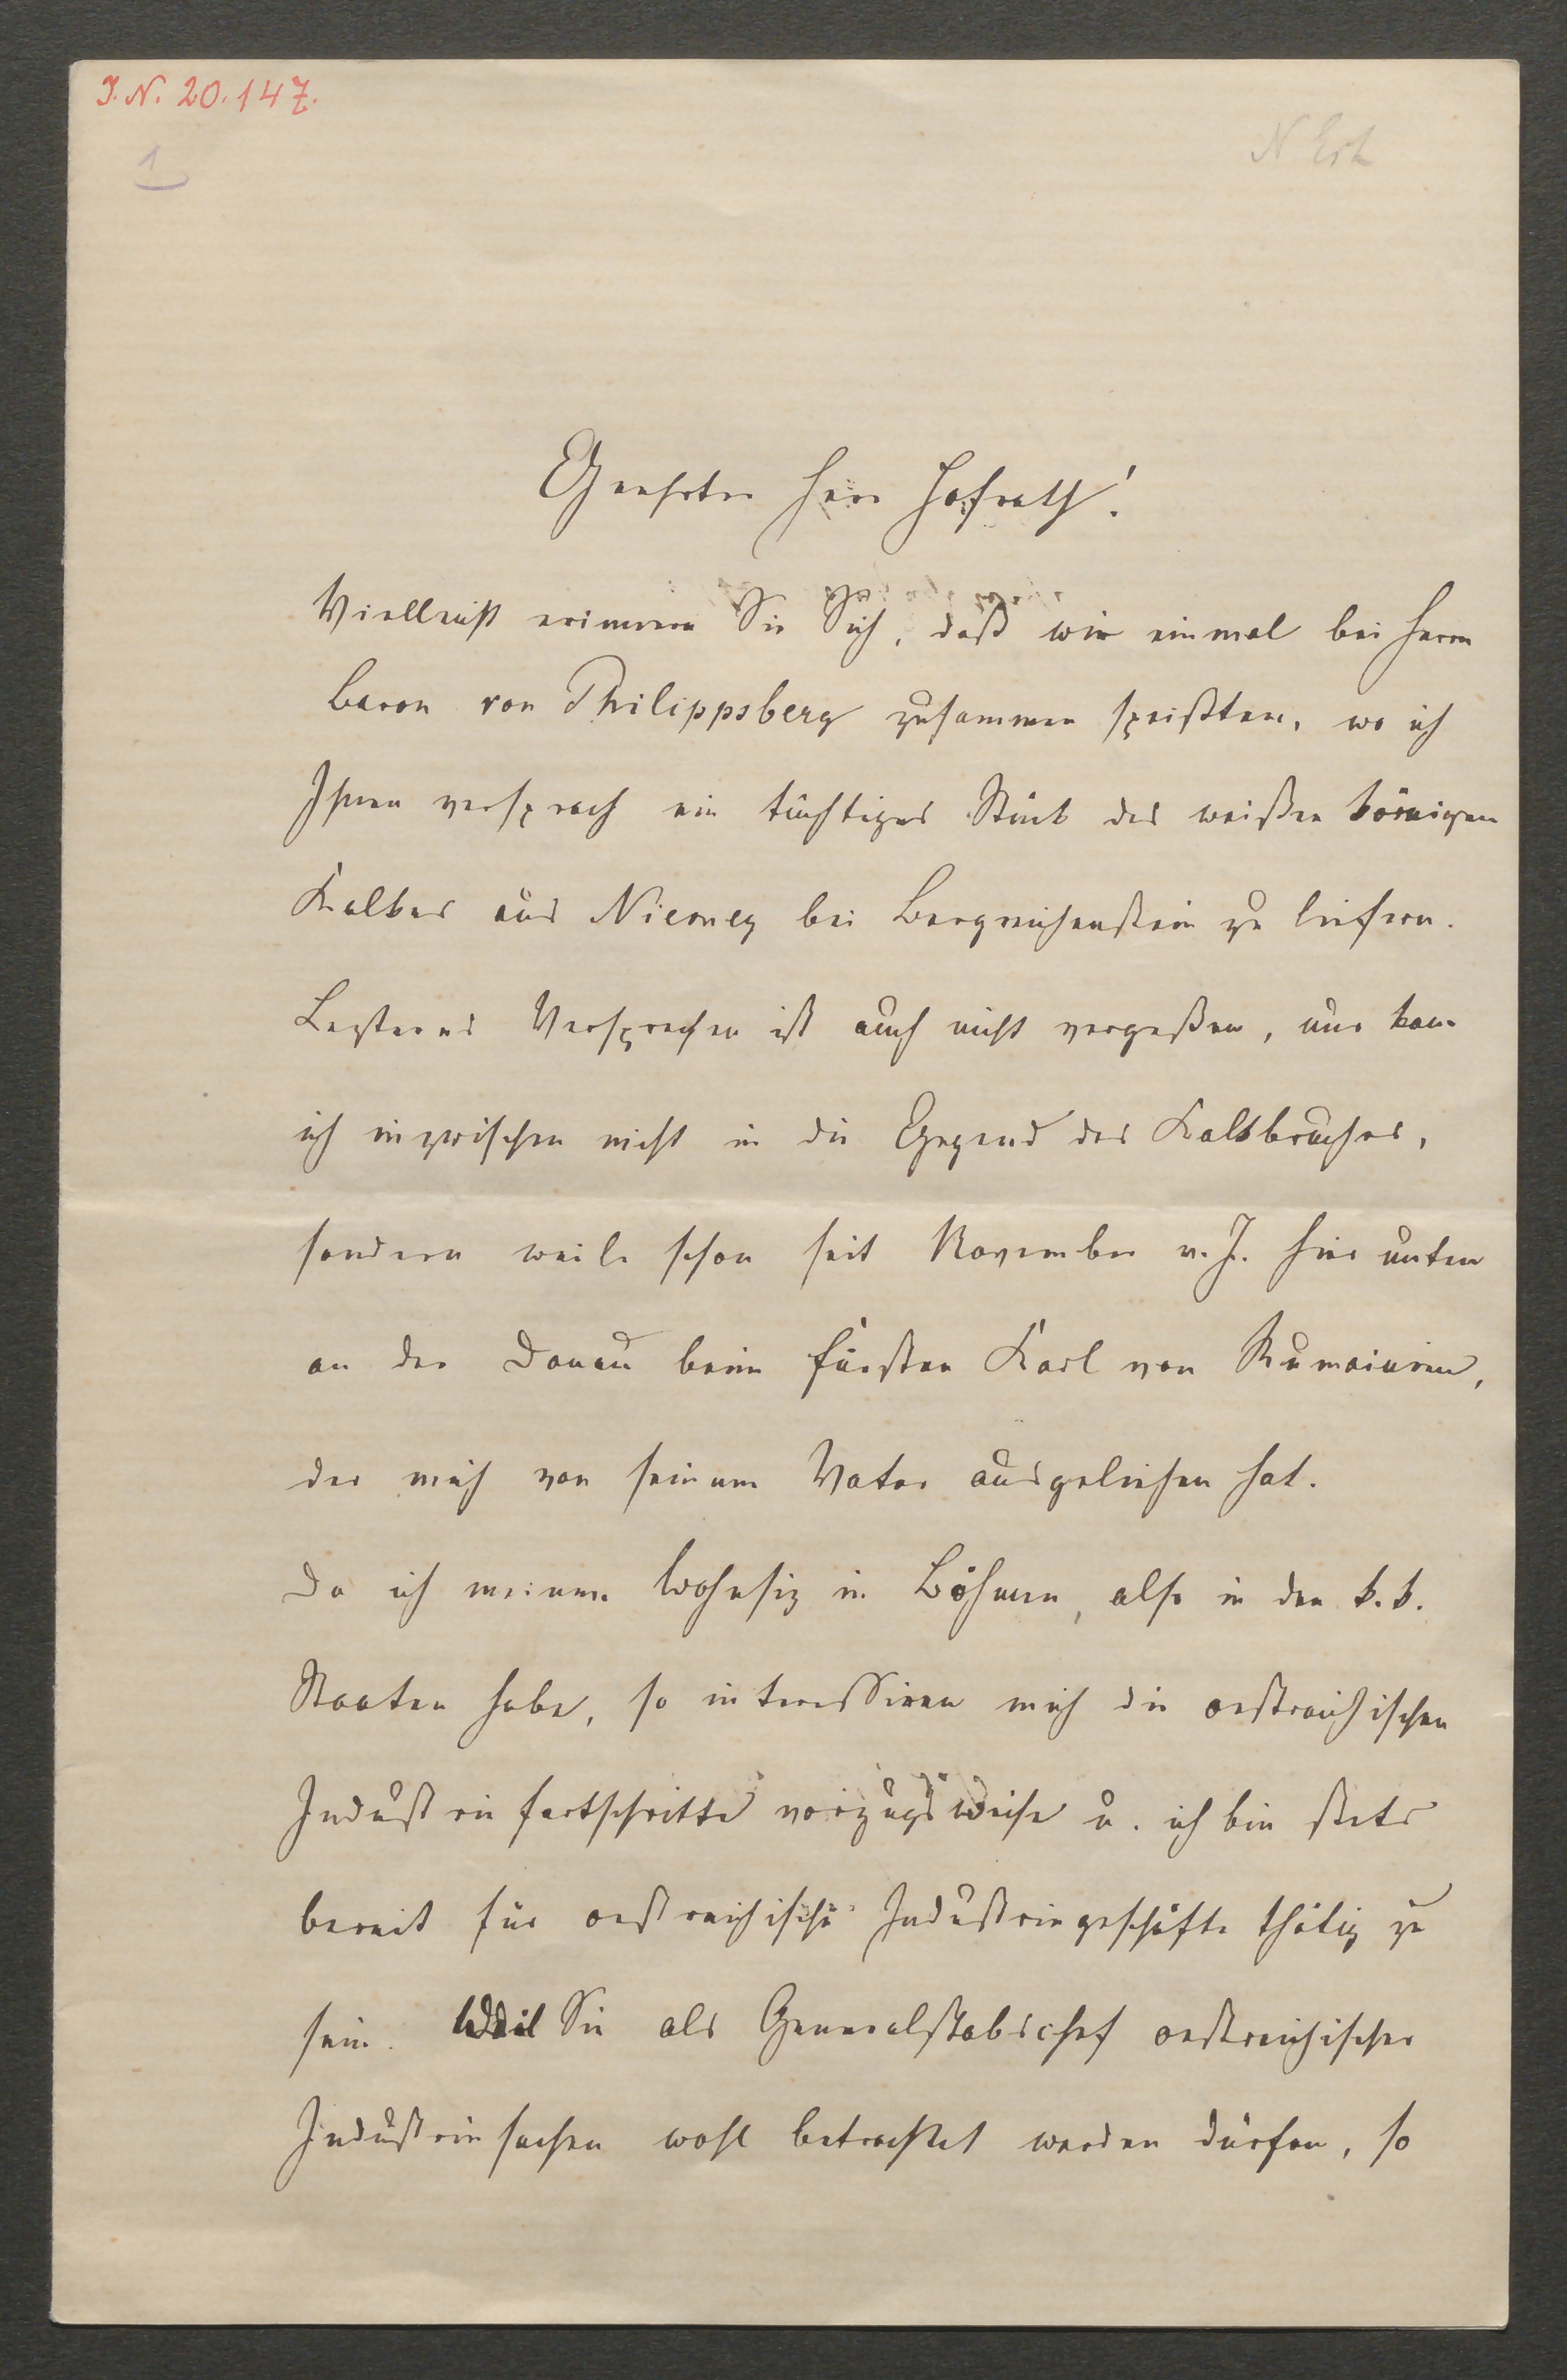 J.N. 20.147.
1
N Erl
Geehrter Herr Hofrath!
Vielleicht erinnern Sie Sich, daß wir einmal bei Herrn
Baron von Philippsberg zusammen speißten, wo ich
Ihnen versprach ein tüchtiges Stück des weißen körnigen
Kalkes aus bei Bergreichenstein zu liefern.
Lezteres Versprechen ist auch nicht vergeßen, nur kam
ich inzwischen nicht in die Gegend des Kalkbruches,
sondern weile schon seit November v. J. hier unten
an der Donau beim Fürsten Karl von Rumainien,
der mich von seinem Vater ausgeliehen hat.
Da ich meinen Wohnsiz in Böhmen, also in den k. k.
Staaten habe, so interessiren mich die oestreichischen
Industriefortschritte vorzugsweise u. ich bin stets
bereit für oestreichische Industriegeschäfte thätig zu
sein. Weil Sie als Generalstabschef oestreichischer
Industriesachen wohl betrachtet werden dürfen, so